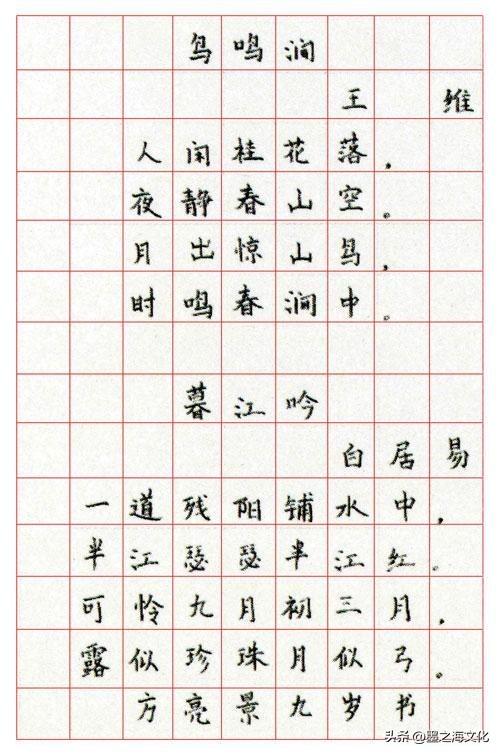 鸟鸣涧
王维
人闲桂花落，
夜静春山空。
月出惊山鸟，
时鸣春涧中。
暮江吟
白居易
一道残阳铺水中，
半江瑟瑟半江红。
可怜九月初三月，
露似珍珠月似弓。
方亮景九岁书
头条 @墨之海文化